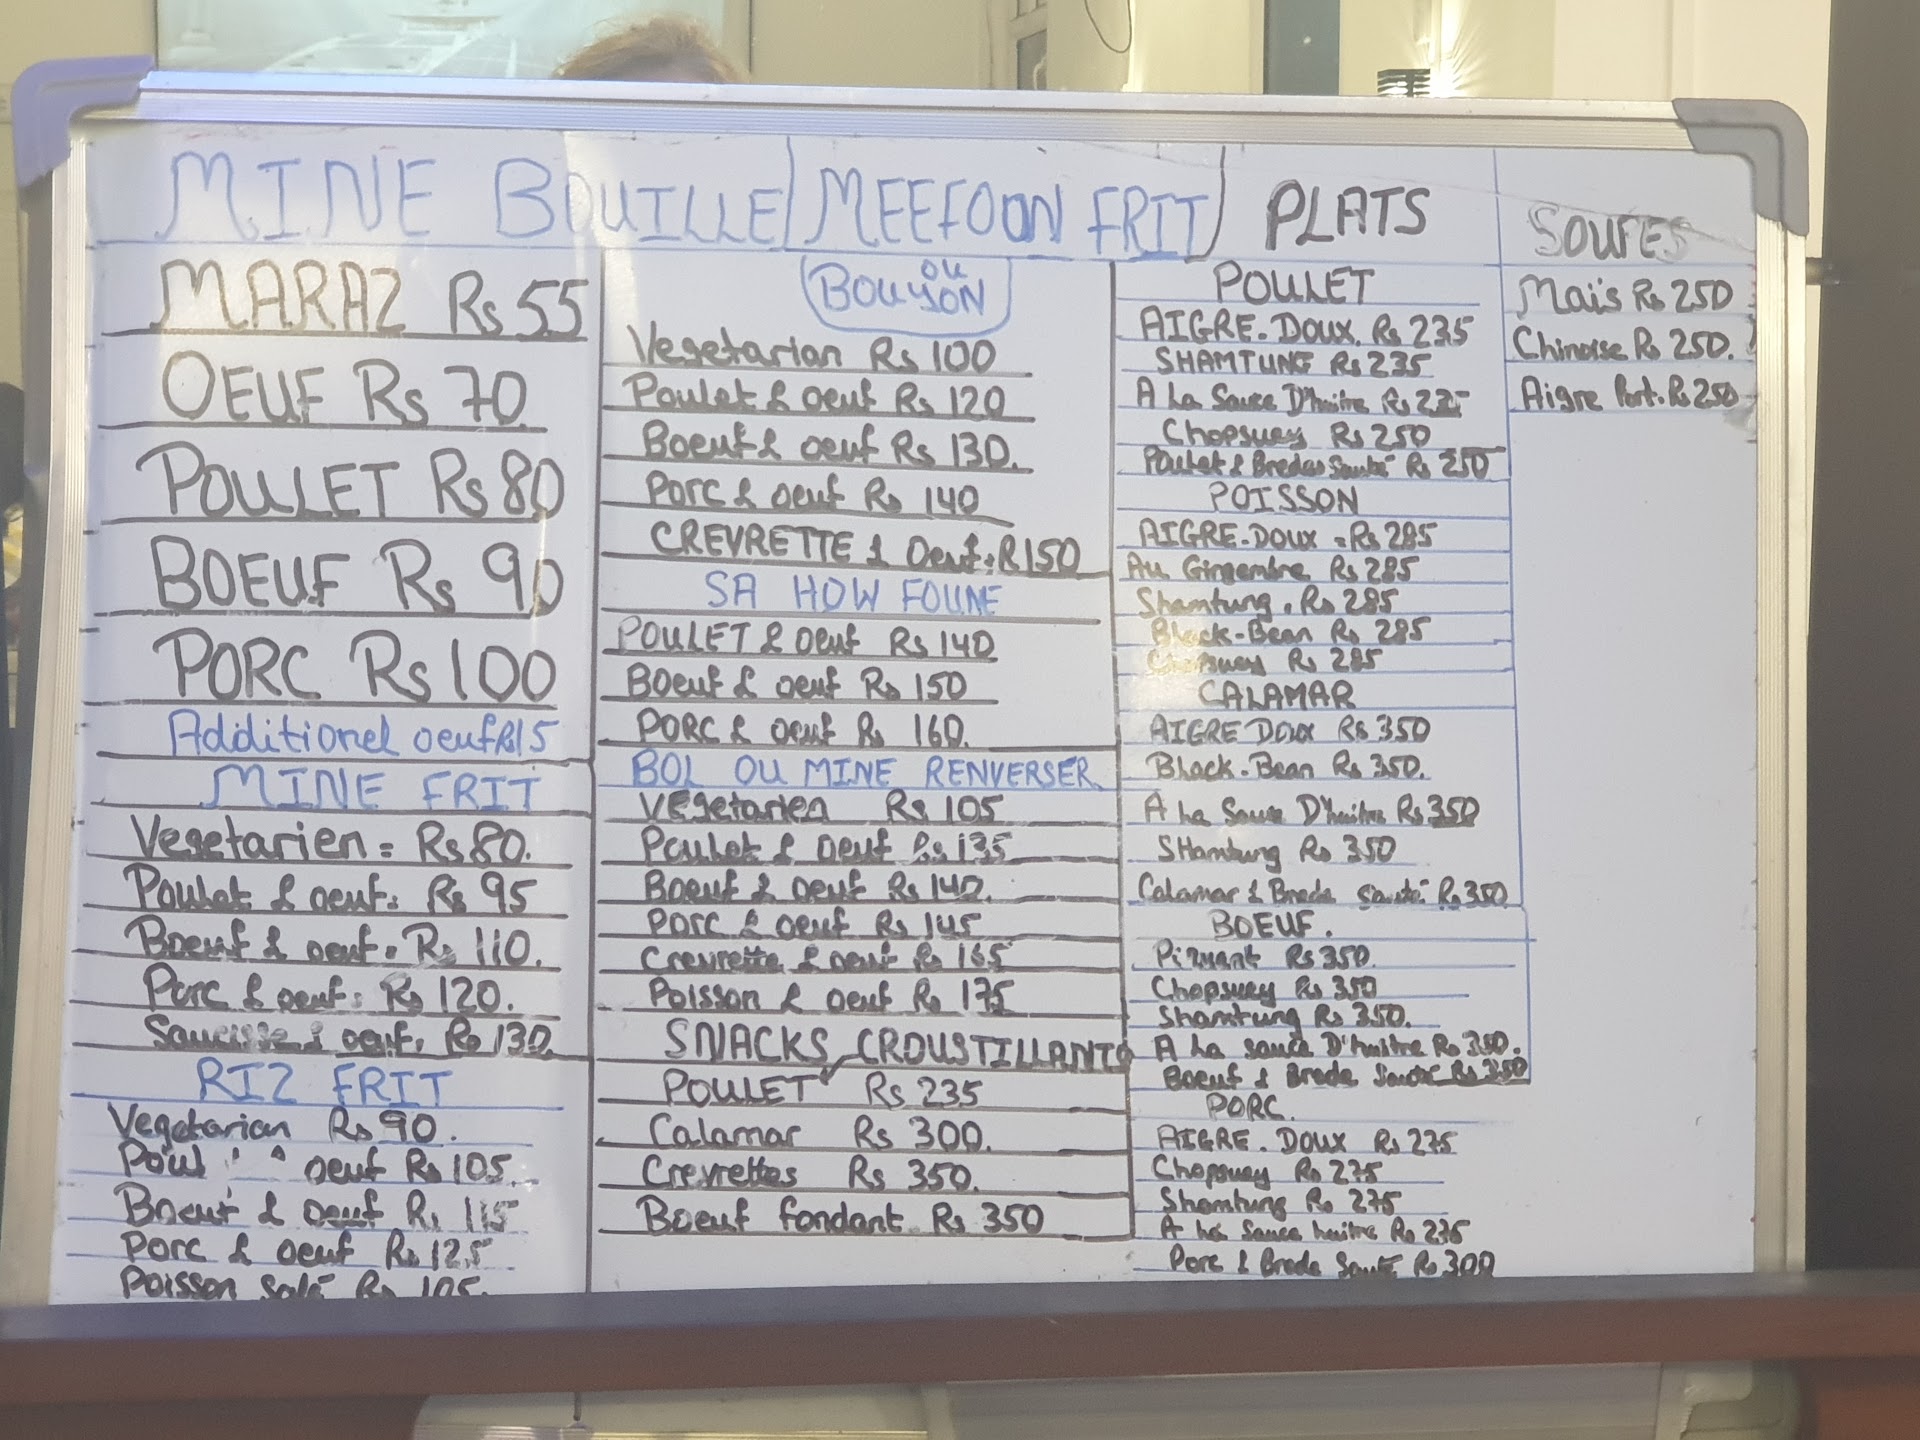 MINE BOUILLE
MARAZ Rs 55
OEUF Rs 70
POULET Rs 80
BOEUF Rs 90
PORC Rs 100
Additionel oeuf Rs 15
MINE FRIT
Vegetarien = Rs 80.
Poulet & oeuf: Rs 95
Boeuf & oeuf = Rs 110.
Porc & oeuf: Rs 120.
Saucisse & oeuf: Rs 130.
RIZ FRIT
Vegetarian Rs 90.
oeuf Rs 105.
Boeuf & oeuf Rs 115
Porc & oeuf Rs 125
Poisson salé Rs 105.
MEEFOON FRIT
OU
BOUYON
Vegetarian Rs 100
Poulet & oeuf Rs 120
Boeuf & oeuf Rs 130.
Porc & oeuf Rs 140
CREVRETTE & Oeuf. R 150
SA HOW FOUNE
POULET & oeuf Rs 140
Boeuf & oeuf Rs 150
PORC & oeuf Rs 160.
BOL OU MINE RENVERSER
VEgetarien Rs 105
Poulet & oeuf Rs 135
Boeuf & oeuf Rs 140.
Porc & oeuf Rs 145
Crevrette & oeuf Rs 165
Poisson & oeuf Rs 175
SNACKS CROUSTILLANTS
POULET Rs 235
Calamar Rs 300.
Crevrettes Rs 350.
Boeuf fondant Rs 350
PLATS
POULET
AIGRE-DOUX. Rs 235
SHAMTUNG Rs 235
A La Sauce D'huitre Rs
Chopsuey Rs 250
Poulet & Bredes Sauté Rs 250
POISSON
AIGRE-DOUX = Rs 285
Au Gingembre Rs 285
Shamtung. Rs 285
Black-Bean Rs 285
Chopsuey Rs 285
CALAMAR
AIGRE DOUX Rs 350
Black-Bean Rs 350.
A La Sauce D'huitre Rs 350
SHamtung Rs 350
Calamar & Brede Sauté Rs 350
BOEUF.
Piquant Rs 350.
Chopsuey Rs 350
Shamtung Rs 350.
A La sauce D'huitre Rs 350.
Boeuf & Brede Sauté Rs 350
PORC.
AIGRE. DOUX Rs 275
Chopsuey Rs 275
Shamtung Rs 275
A La Sauce huitre Rs 275
Porc & Brede Sauté Rs 300
SOUPES
Maïs Rs 250
Chinoise Rs 250.
Aigre Port. Rs 250